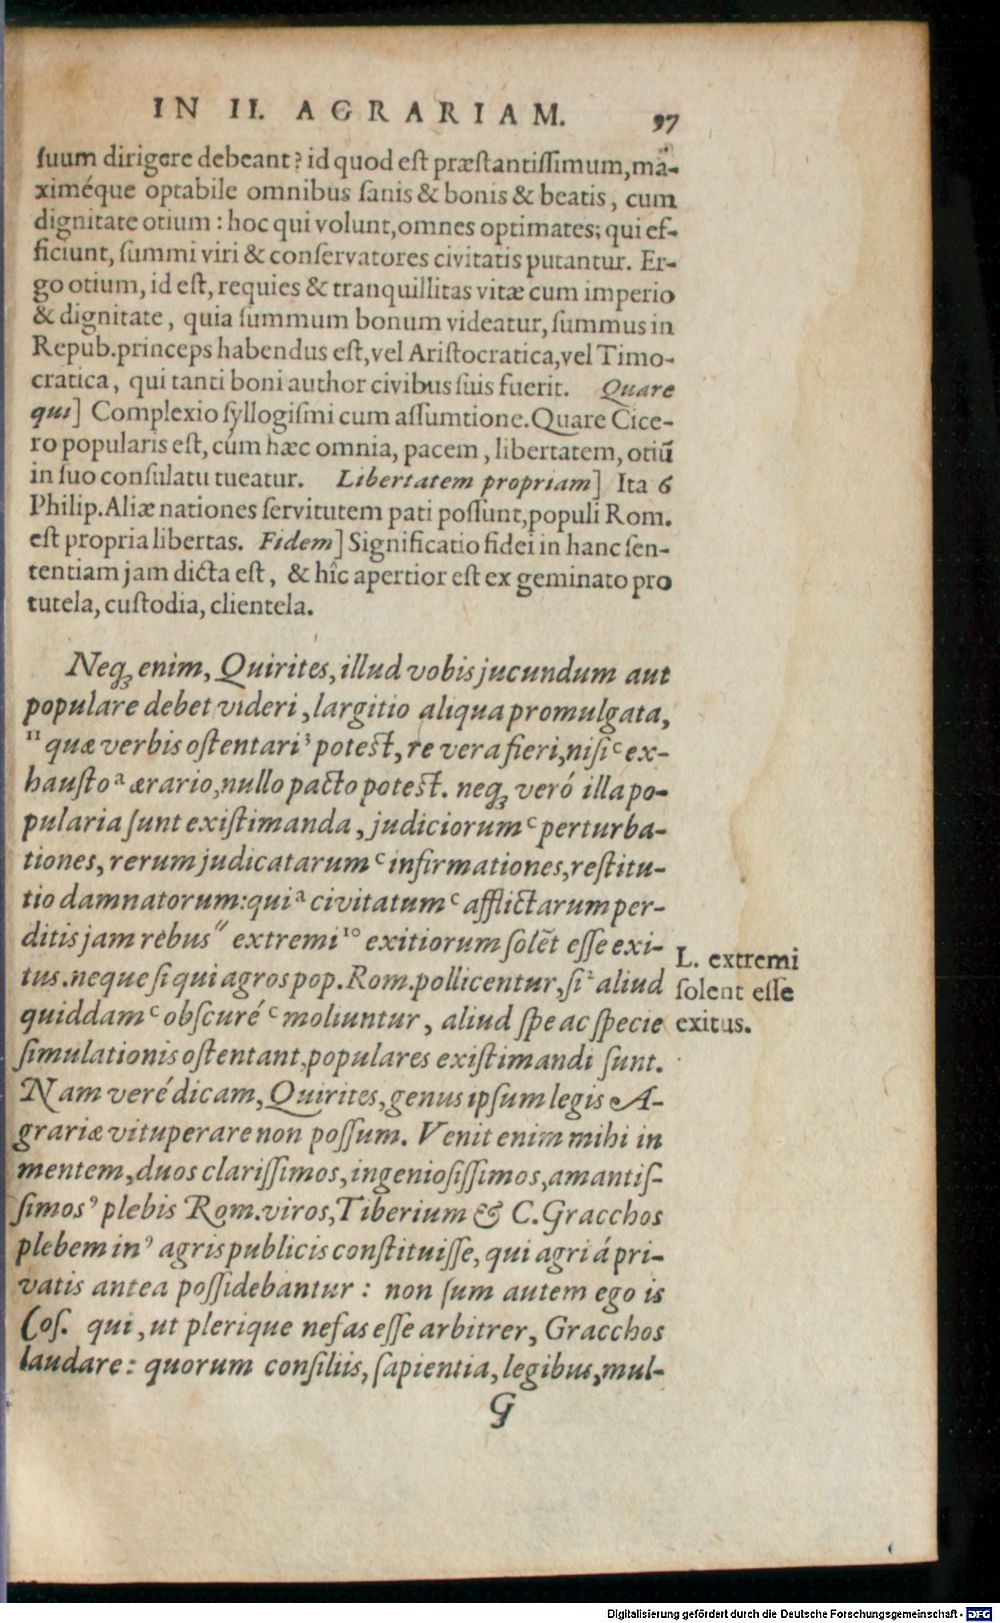 IN II. AGRARIAM. 97
ſuum dirigere debeant? id quod eſt præſtantiſſimum, ma-
ximéque optabile omnibus ſanis & bonis & beatis, cum
dignitate otium: hoc qui volunt, omnes optimates; qui ef-
ficiunt, ſummi viri & conſervatores civitatis putantur. Er-
go otium, id eſt, requies & tranquillitas vitæ cum imperio
& dignitate, quia ſummum bonum videatur, ſummus in
Repub. princeps habendus eſt, vel Ariſtocratica, vel Timo-
cratica, qui tanti boni author civibus ſuis fuerit. Quare
qui] Complexio ſyllogiſmi cum aſſumtione. Quare Cice-
ro popularis eſt, cúm hæc omnia, pacem, libertatem, otiũ
in ſuo conſulatu tueatur. Libertatem propriam] Ita 6
Philip. Aliæ nationes ſervitutem pati poſſunt, populi Rom.
eſt propria libertas. Fidem] Significatio fidei in hanc ſen-
tentiam jam dicta eſt, & hîc apertior eſt ex geminato pro
tutela, cuſtodia, clientela.
Neqꝫ enim, Quirites, illud vobis jucundum aut
populare debet videri, largitio aliqua promulgata,
¹¹ quæ verbis oſtentari³ poteſt, re vera fieri, niſi ᶜ ex-
hauſto ᵃ ærario, nullo pacto poteſt. neqꝫ veró illa po-
pularia ſunt exiſtimanda, judiciorum ᶜ perturba-
tiones, rerum judicatarum ᶜ infirmationes, reſtitu-
tio damnatorum: qui ᵃ civitatum ᶜ afflictarum per-
ditis jam rebus" extremi ¹⁰ exitiorum ſolẽt eſſe exi-
tus. neque ſi qui agros pop. Rom. pollicentur, ſi² aliud
quiddam ᶜ obſcuré ᶜ moliuntur, aliud ſpe ac ſpecie
ſimulationis oſtentant, populares exiſtimandi ſunt.
Nam veré dicam, Quirites, genus ipſum legis A-
grariæ vituperare non poſſum. Venit enim mihi in
mentem, duos clariſſimos, ingenioſiſſimos, amantiſ-
ſimos⁹ plebis Rom. viros, Tiberium & C. Gracchos
plebem in⁹ agris publicis conſtituiſſe, qui agri á pri-
vatis antea poſſidebantur: non ſum autem ego is
Coſ. qui, ut plerique nefas eſſe arbitrer, Gracchos
laudare: quorum conſiliis, ſapientia, legibus, mul-
G
L. extremi
ſolent eſſe
exitus.
Digitalisierung gefördert durch die Deutsche Forschungsgemeinschaft - DFG